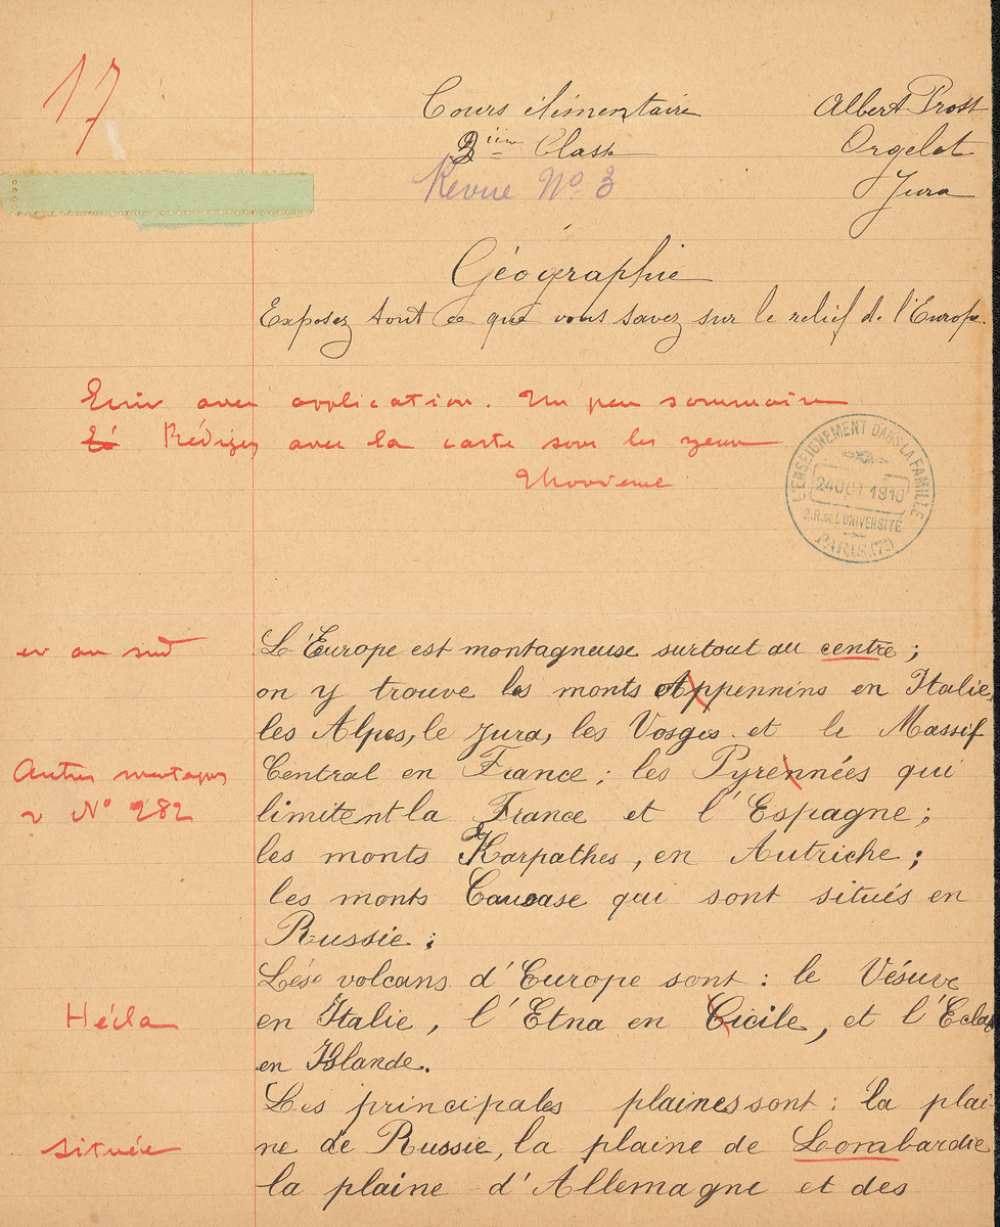 17
Cours élémentaire Albert Prost
2ième Classe Orgelet
Revue No 3 Jura
Géographie
Exposez tout ce que vous savez sur le relief de l'Europe.
Ecrire avec application. Un peu sommaire
Rédigez avec la carte sous les yeux
L'ENSEIGNEMENT DANS LA FAMILLE
24 OCT 1910
2.R. de L'UNIVERSITÉ
PARIS (7e)
et au sud L'Europe est montagneuse surtout au centre ;
on y trouve les monts Appennins en Italie,
les Alpes, le Jura, les Vosges et le Massif
Autres montagnes Central en France ; les Pyrennées qui
v No 282 limitent la France et l'Espagne ;
les monts Karpathes, en Autriche ;
les monts Caucase qui sont situés en
Russie ;
Les volcans d'Europe sont : le Vésuve
Hécla en Italie, l'Etna en Cicile, et l'Ecla
en Islande.
Les principales plaines sont : la plai-
située ne de Russie, la plaine de Lombardie
la plaine d'Allemagne et des